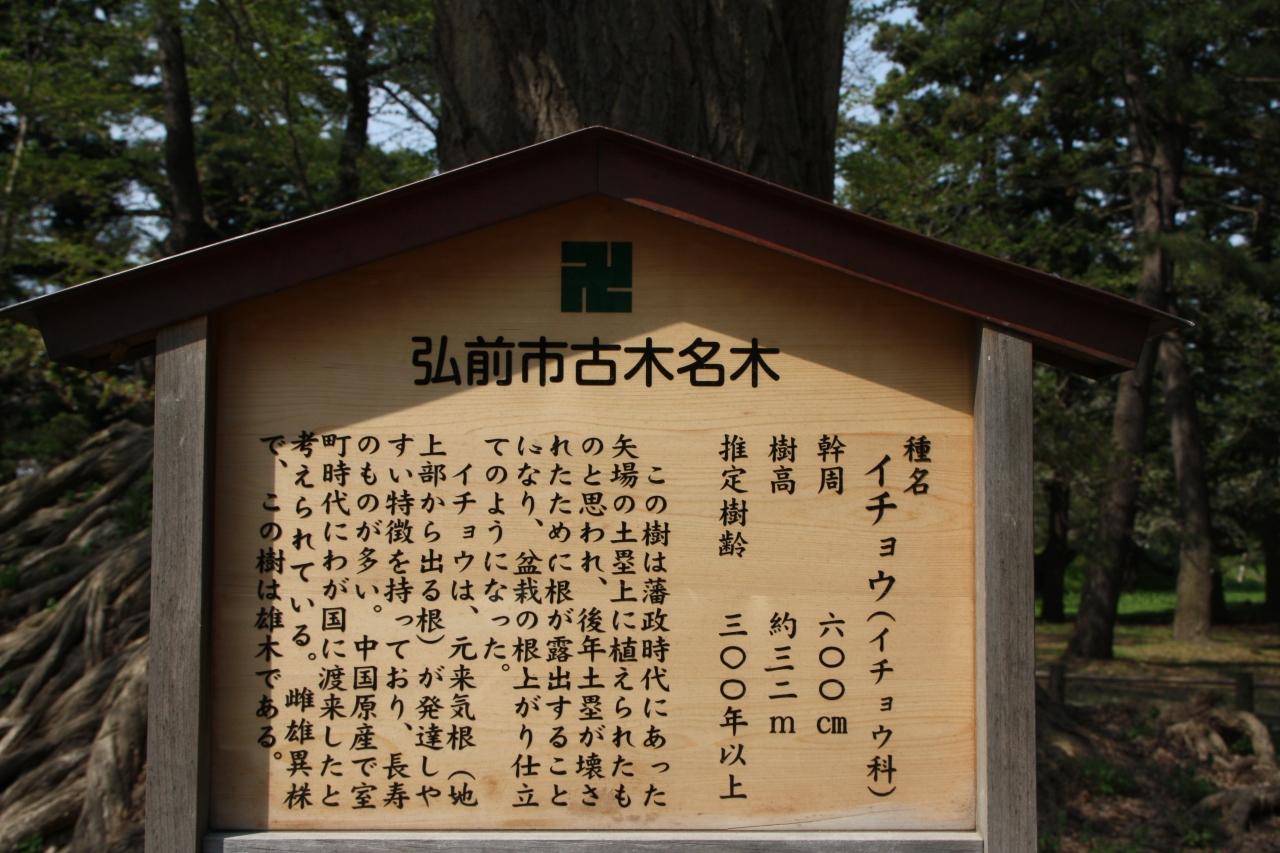 卍
弘前市古木名木
種名
イチョウ(イチョウ科)
幹周 六〇〇cm
樹高 約三二m
推定樹齢 三〇〇年以上
この樹は藩政時代にあった
矢場の土塁上に植えられたも
のと思われ、後年土塁が壊さ
れたために根が露出すること
になり、盆栽の根上がり仕立
てのようになった。
イチョウは、元来気根(地
上部から出る根)が発達しや
すい特徴を持っており、長寿
のものが多い。中国原産で室
町時代にわが国に渡来したと
考えられている。雌雄異株
で、この樹は雄木である。